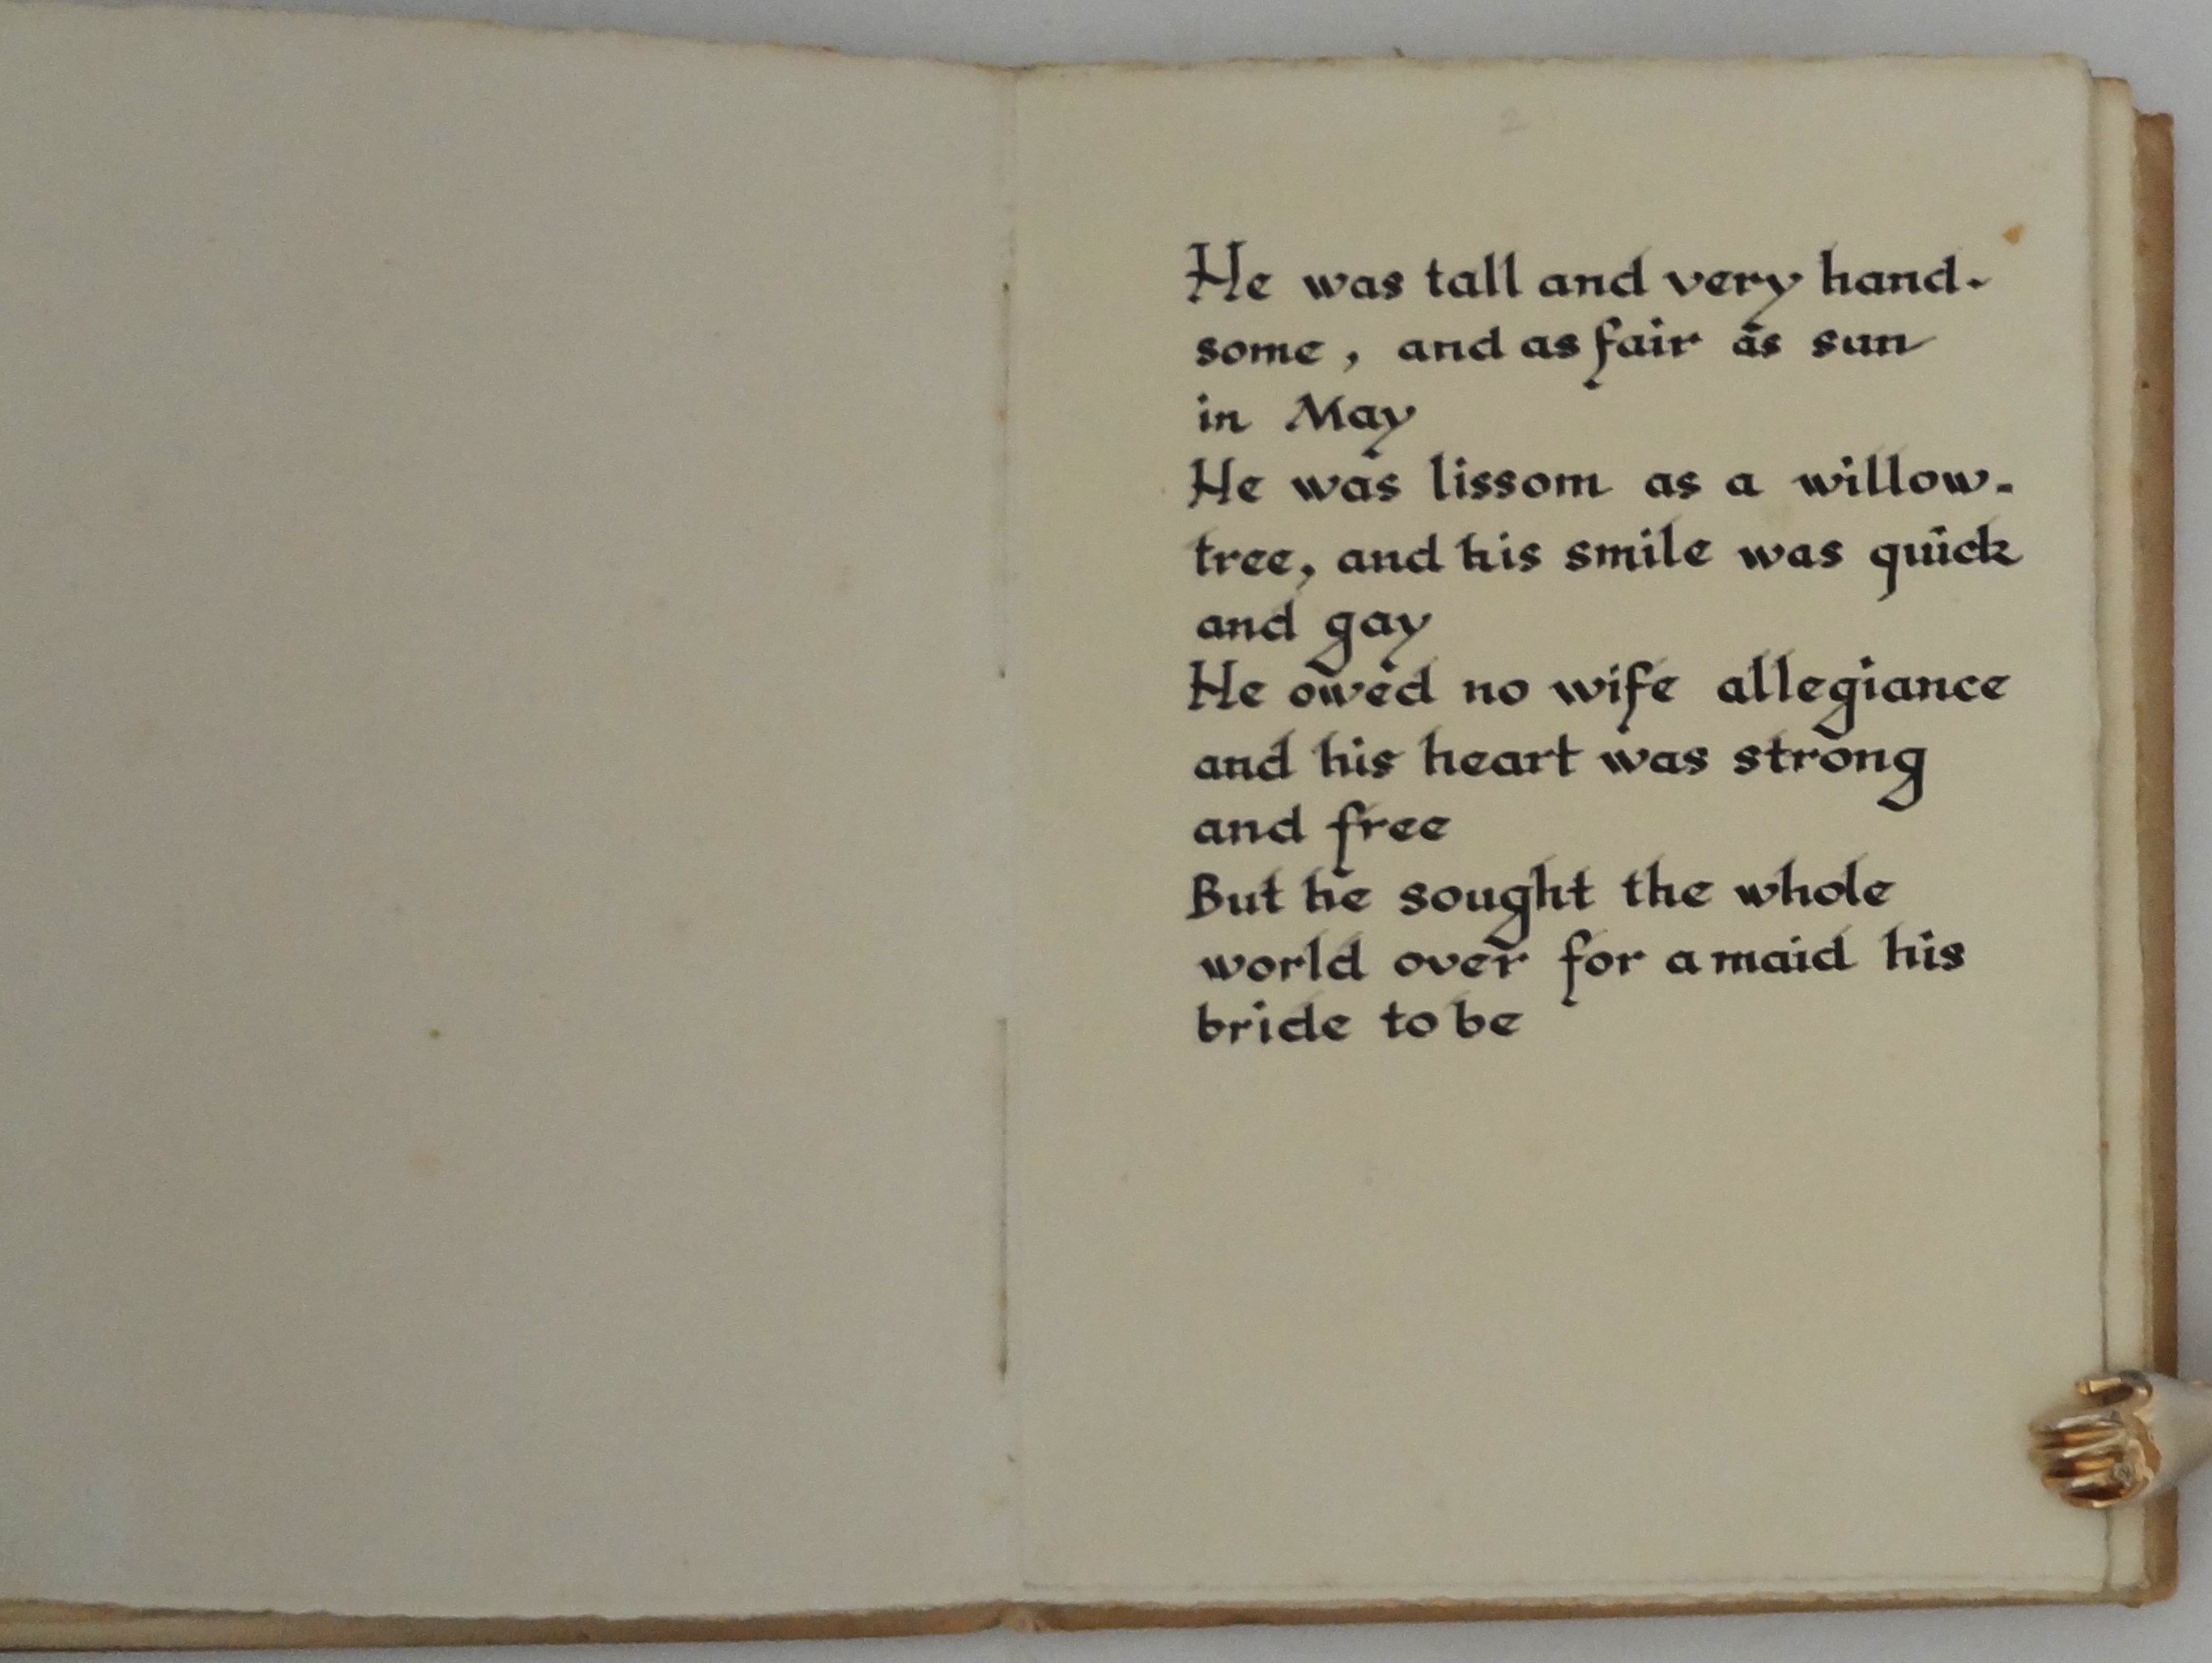 2
He was tall and very hand-
some, and as fair as sun
in May
He was lissom as a willow-
tree, and his smile was quick
and gay
He owed no wife allegiance
and his heart was strong
and free
But he sought the whole
world over for a maid his
bride to be